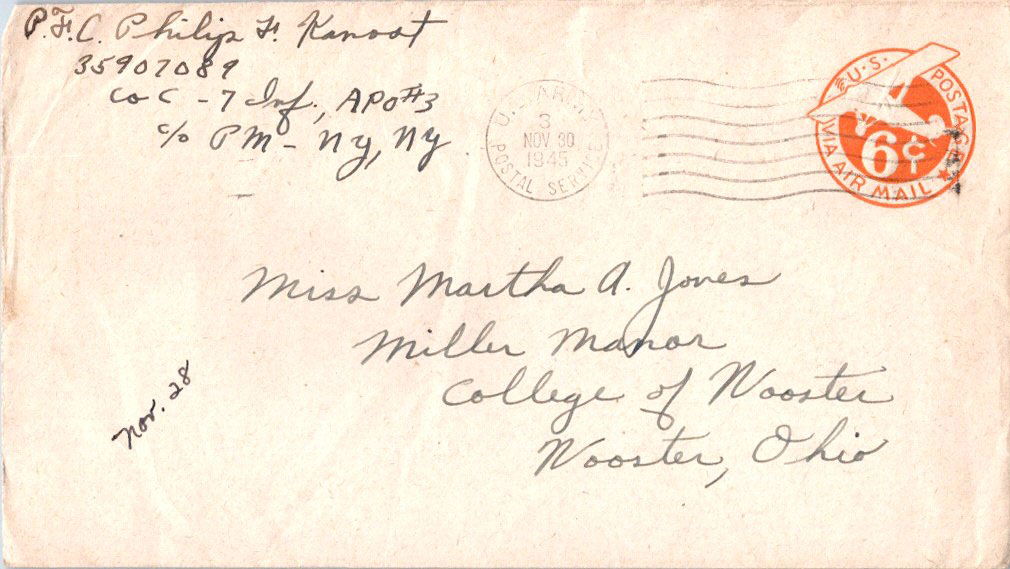 P.F.C. Philip F. Kanost
35907089
Co C - 7 Inf., APO #3
c/o PM - NY, NY
U.S. ARMY
3
NOV 30
1945
POSTAL SERVICE
U.S. POSTAGE
6¢
VIA AIR MAIL
Miss Martha A. Jones
Miller Manor
College of Wooster
Wooster, Ohio
Nov. 28